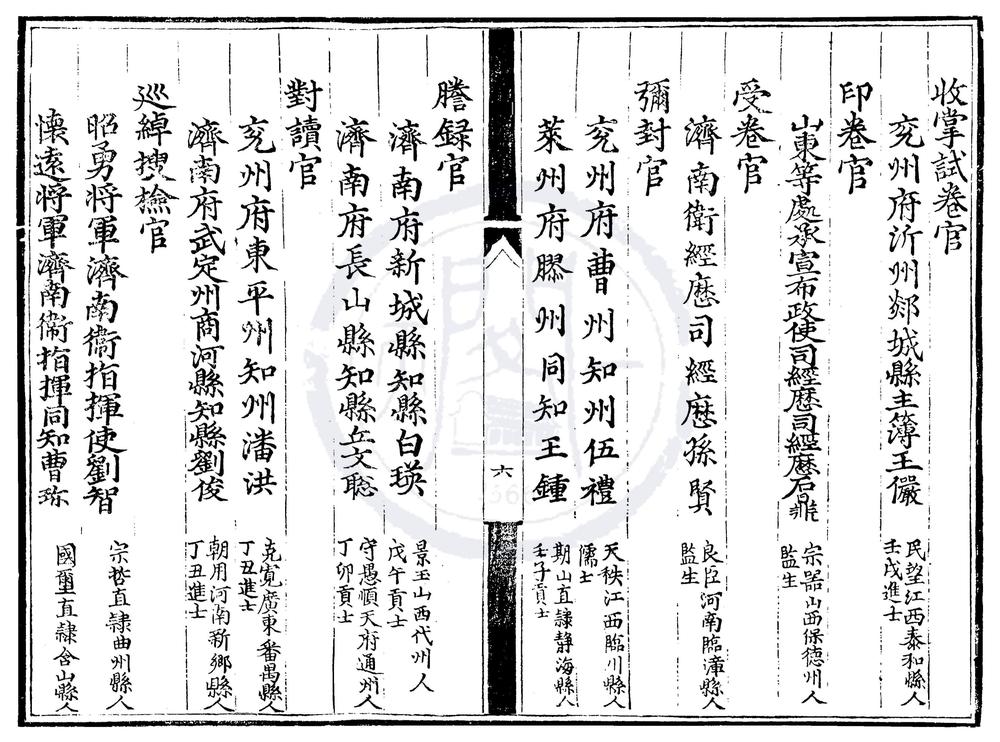 收掌試卷官
兖州府沂州郯城縣主簿王儼
民望江西泰和縣人
壬戌進士
印卷官
山東等處承宣布政使司經歷司經歷石鼎
宗器山西保德州人
監生
受卷官
濟南衛經歷司經歷孫賢
良臣河南臨漳縣人
監生
彌封官
兖州府曹州知州伍禮
天秩江西臨川縣人
儒士
萊州府膠州同知王鍾
期山直隸靜海縣人
壬子貢士
六
謄録官
濟南府新城縣知縣白瑛
景玉山西代州人
戊午貢士
濟南府長山縣知縣丘文聡
守愚順天府通州人
丁卯貢士
對讀官
兖州府東平州知州潘洪
克寛廣東番禺縣人
丁丑進士
濟南府武定州商河縣知縣劉俊
朝用河南新鄉縣人
丁丑進士
巡綽搜檢官
昭勇將軍濟南衛指揮使劉智
宗哲直隸曲州縣人
懷遠將軍濟南衛指揮同知曹珎
國璽直隸含山縣人